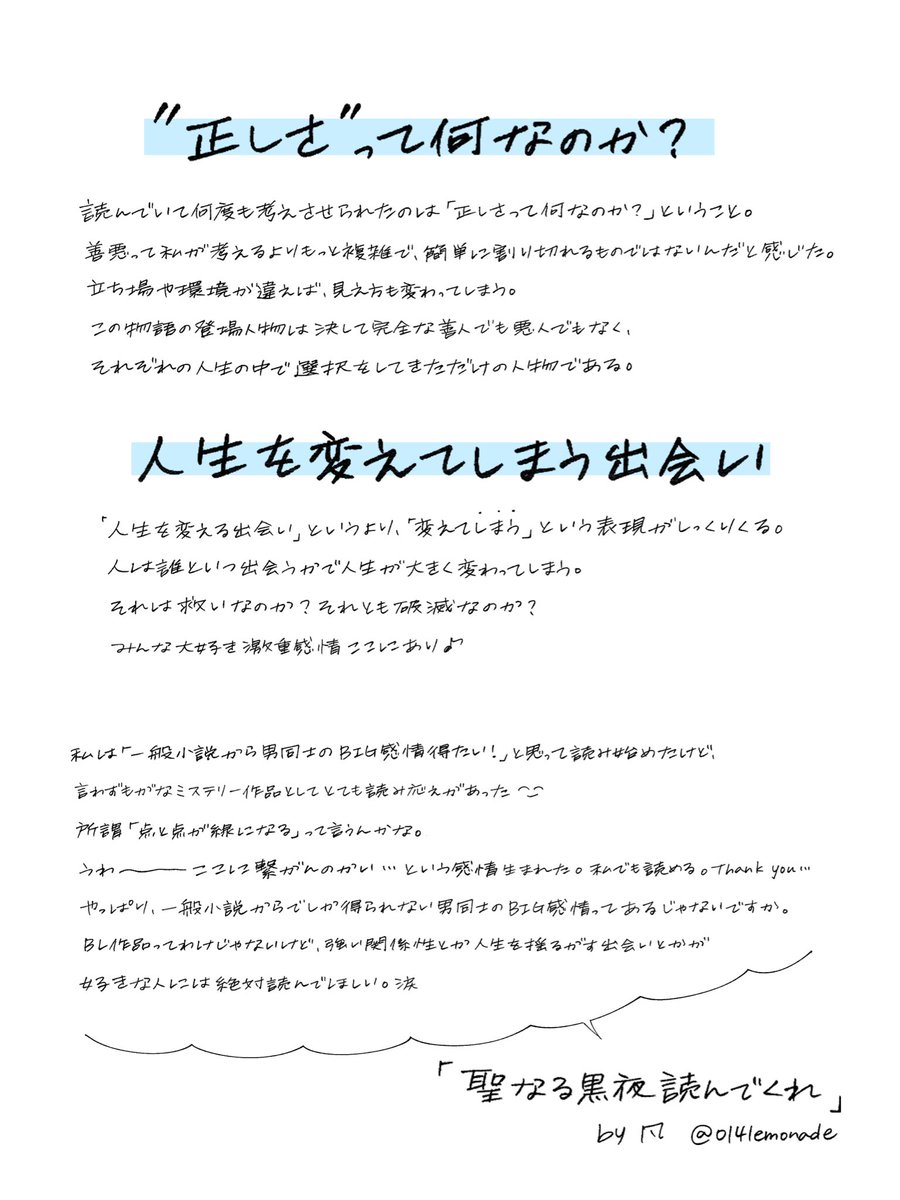 "正しさ"って何なのか?
読んでいて何度も考えさせられたのは「正しさって何なのか?」ということ。
善悪って私が考えるよりもっと複雑で、簡単に割り切れるものではないんだと感じた。
立ち場や環境が違えば、見え方も変わってしまう。
この物語の登場人物は決して完全な善人でも悪人でもなく、
それぞれの人生の中で選択をしてきただけの人物である。
人生を変えてしまう出会い
「人生を変える出会い」というより、「変えてしまう」という表現がしっくりくる。
人は誰といつ出会うかで人生が大きく変わってしまう。
それは救いなのか?それとも破滅なのか?
みんな大好き激重感情ここにあり♪
私は「一般小説から男同士のBIG感情得たい!」と思って読み始めたけど、
言わずもがなミステリー作品としてとても読み応えがあった
所謂「点と点が線になる」って言うんかな。
うわ――ここに繋がんのかい…という感情生まれた。私でも読める。Thank you…
やっぱり、一般小説からでしか得られない男同士のBIG感情ってあるじゃないですか。
BL作品ってわけじゃないけど、強い関係性とか人生を揺るがす出会いとかが
好きな人には絶対読んでほしい。涙
「聖なる黒夜読んでくれ」
by 凡 @0141emonade